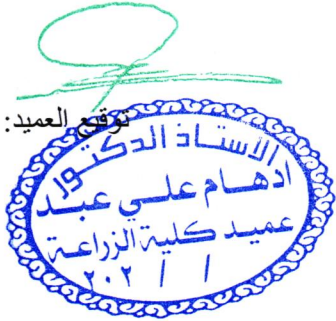 توقيع العميد:
الأستاذ الدكتور
ادهام علي عبد
عميد كلية الزراعة
/ / ٢٠٢